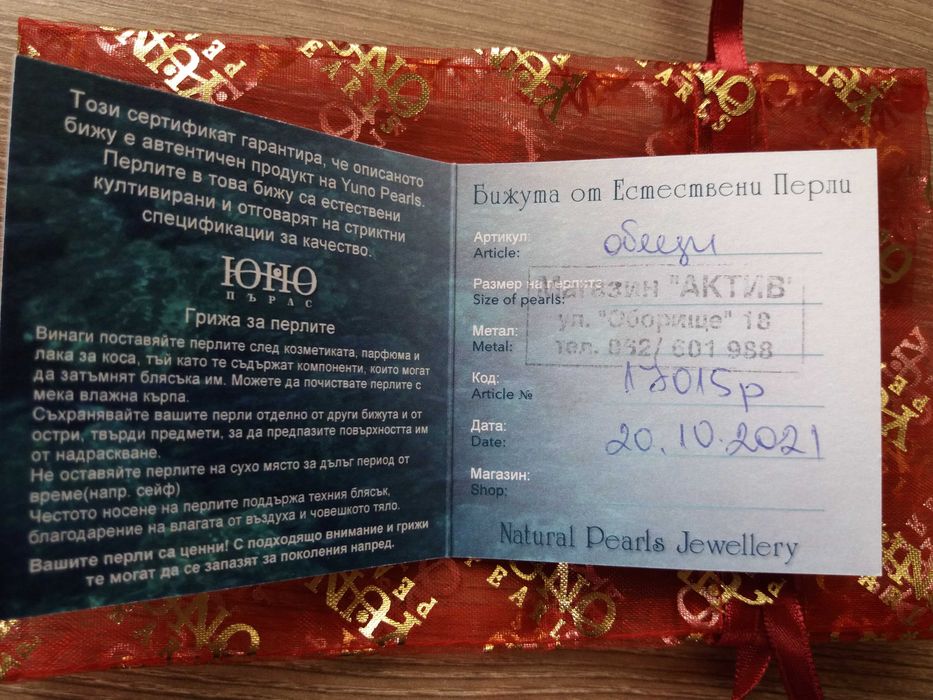 Този сертификат гарантира, че описаното
бижу е автентичен продукт на Yuno Pearls.
Перлите в това бижу са естествени
култивирани и отговарят на стриктни
спецификации за качество.
ЮНО
ПЪРЛС
Грижа за перлите
Винаги поставяйте перлите след козметиката, парфюма и
лака за коса, тъй като те съдържат компоненти, които могат
да затъмнят блясъка им. Можете да почиствате перлите с
мека влажна кърпа.
Съхранявайте вашите перли отделно от други бижута и от
остри, твърди предмети, за да предпазите повърхността им
от надраскване.
Не оставяйте перлите на сухо място за дълъг период от
време(напр. сейф)
Честото носене на перлите поддържа техния блясък,
благодарение на влагата от въздуха и човешкото тяло.
Вашите перли са ценни! С подходящо внимание и грижи
те могат да се запазят за поколения напред.
Бижута от Естествени Перли
Артикул: обеци
Article:
Размер на перлите
Size of pearls:
Магазин "АКТИВ"
ул. "Оборище" 18
тел. 052/ 601 988
Метал:
Metal:
Код: 17015р
Article №
Дата: 20.10.2021
Date:
Магазин:
Shop:
Natural Pearls Jewellery